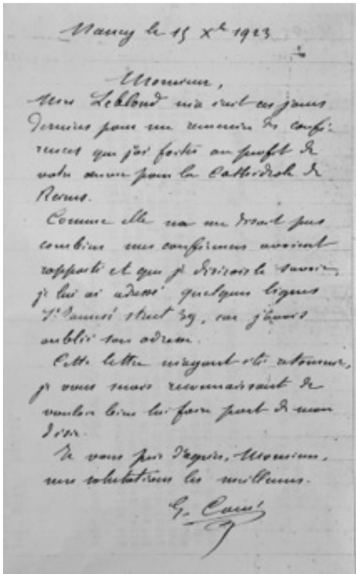 Nancy le 15 Xbre 1923
Monsieur,
Mme Leblond m'a écrit ces jours
derniers pour me remercier des confé-
rences que j'ai faites au profit de
votre œuvre pour la Cathédrale de
Reims.
Comme elle ne me disait pas
combien mes conférences avaient
rapporté et que je désirais le savoir,
je lui ai adressé quelques lignes
street 39, car j'avais
oublié son adresse.
Cette lettre m'ayant été retournée,
je vous serais reconnaissant de
vouloir bien lui faire part de mon
désir.
Je vous prie d'agréer, Monsieur,
mes salutations les meilleures.
G.